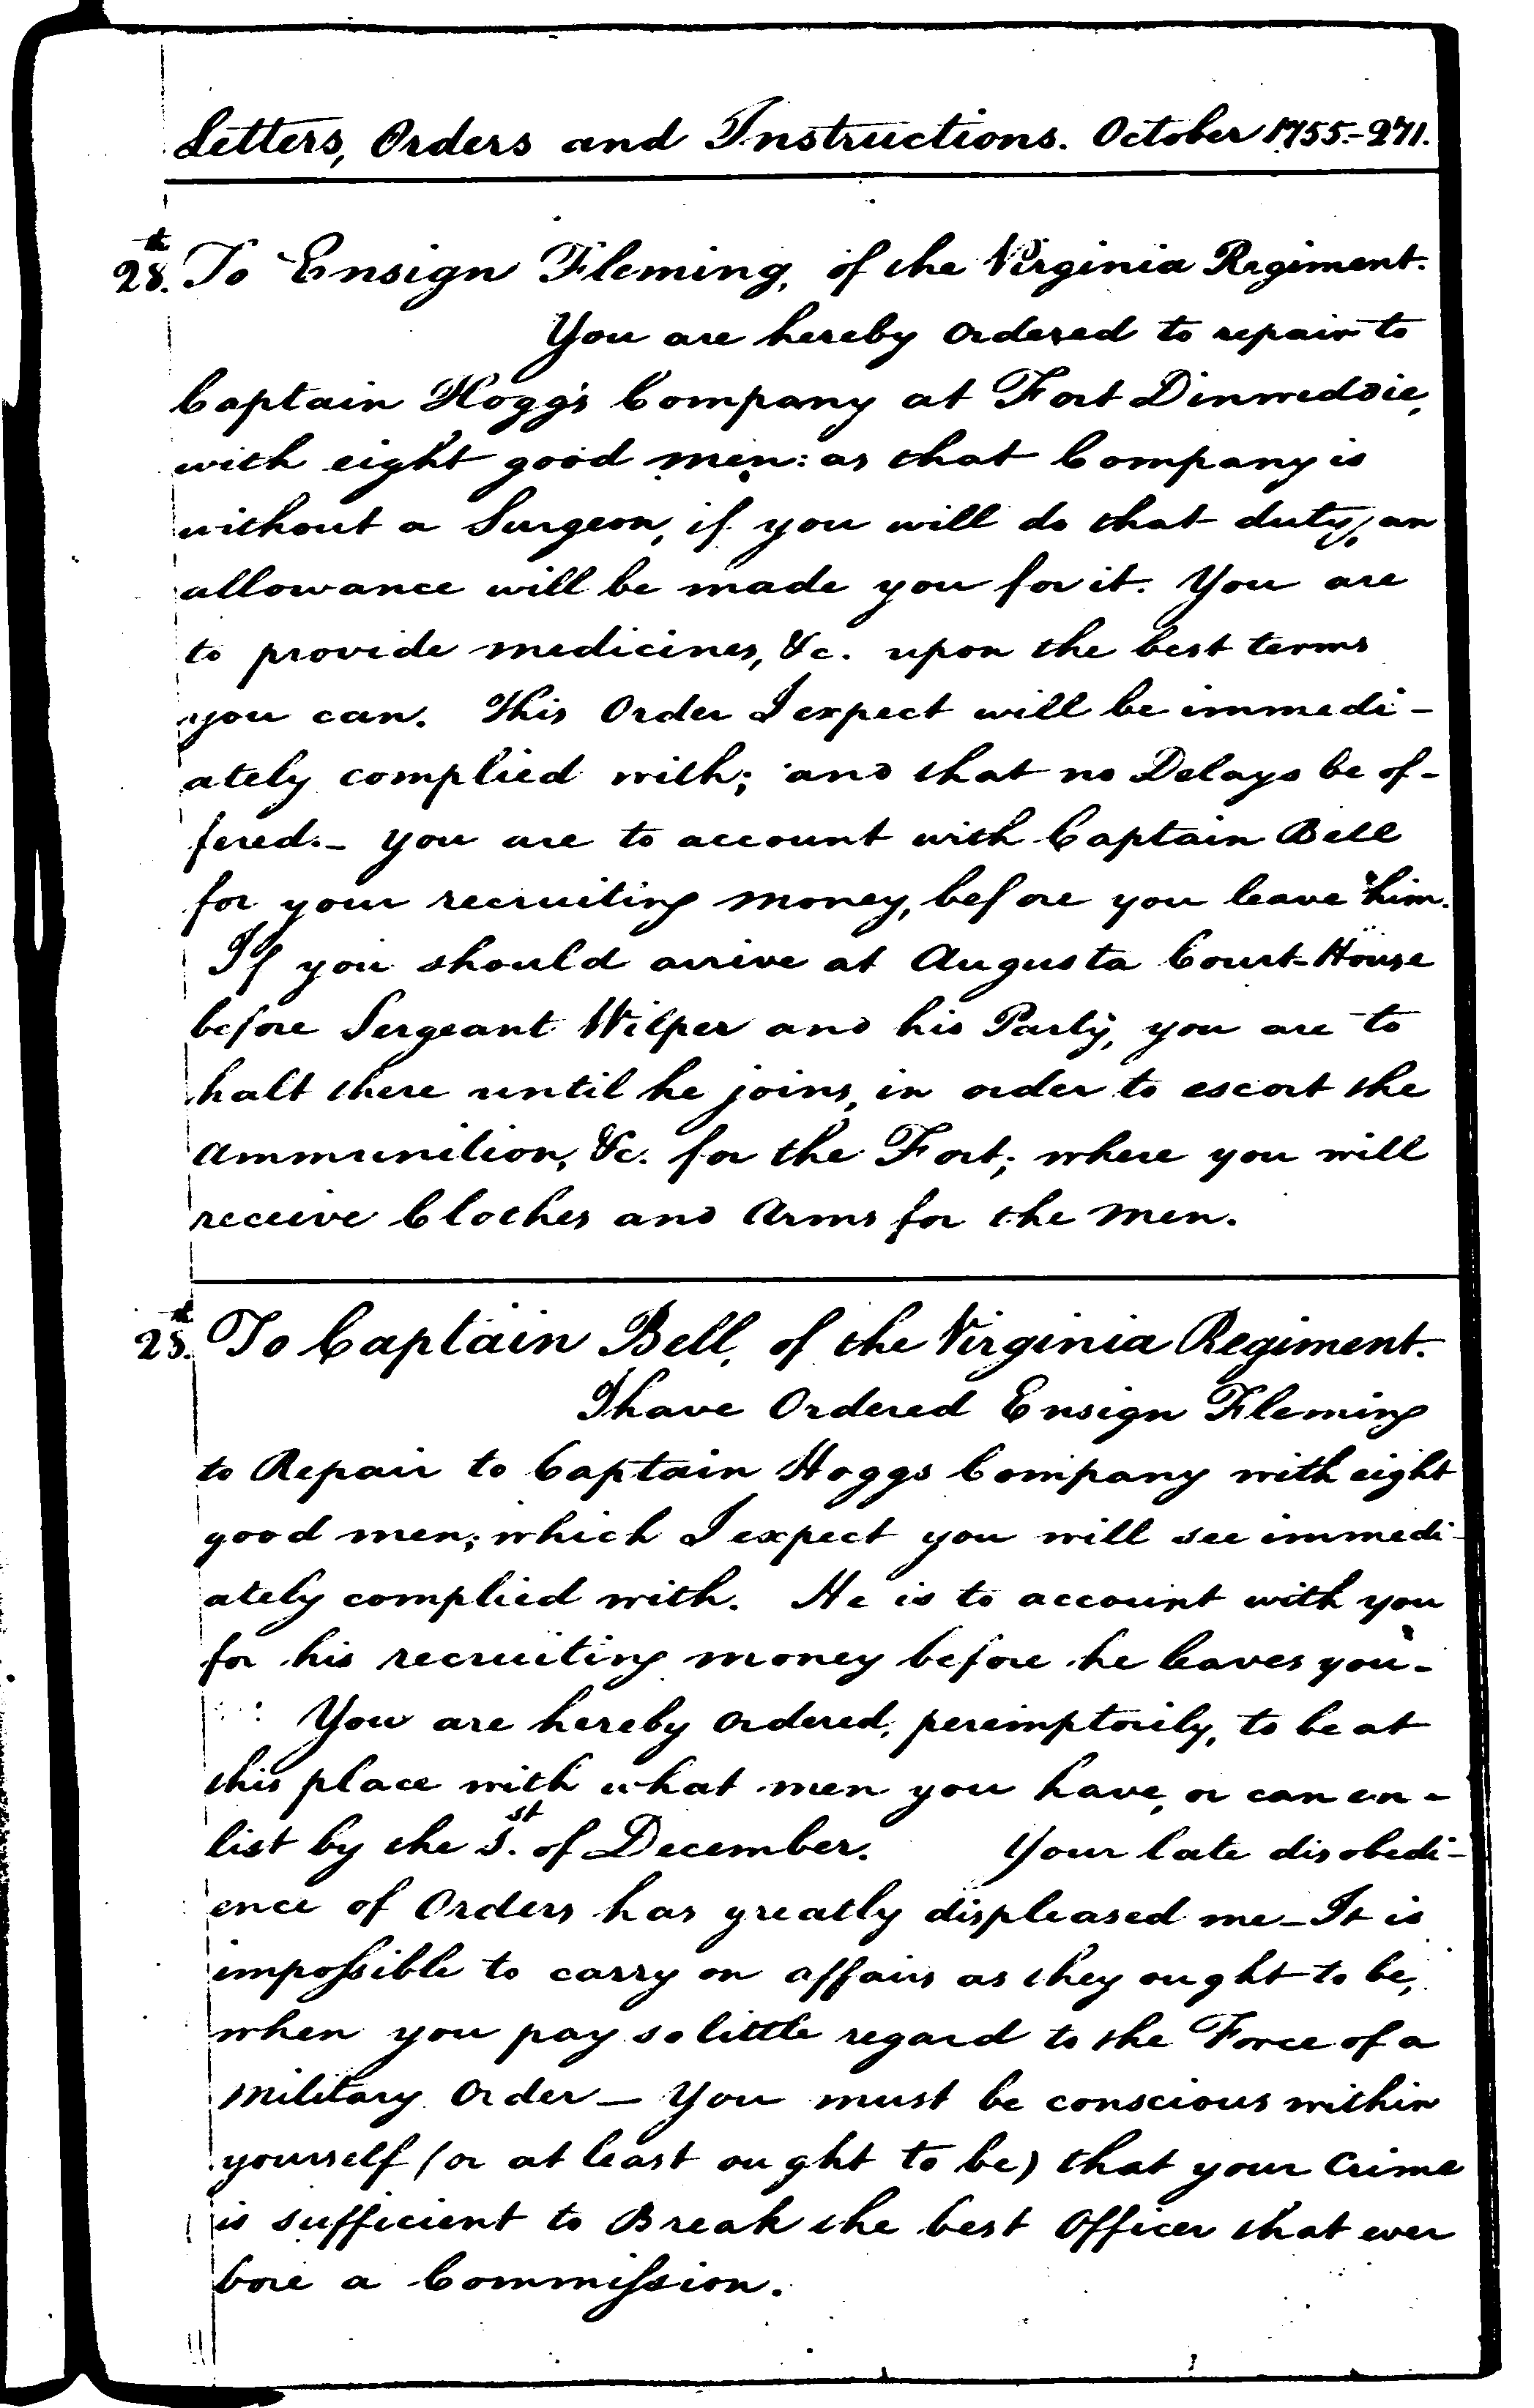 Letters, Orders and Instructions. October 1755.-271.
28.th To Ensign Fleming, of the Virginia Regiment.
You are hereby ordered to repair to
Captain Hogg's Company at Fort Dinwiddie,
with eight good men: as that Company is
without a Surgeon, if you will do that duty, an
allowance will be made you for it. You are
to provide medicines, &c. upon the best terms
you can. This Order I expect will be immedi-
ately complied with; and that no Delays be of-
fered.- you are to account with Captain Bell
for your recruiting money, before you leave him.
If you should arrive at Augusta Court-House
before Sergeant Wilper and his Party, you are to
halt there until he joins, in order to escort the
Ammunition, &c. for the Fort; where you will
receive Clothes and Arms for the men.
28.th To Captain Bell, of the Virginia Regiment.
I have Ordered Ensign Fleming
to Repair to Captain Hoggs Company with eight
good men; which I expect you will see immedi-
ately complied with. He is to account with you
for his recruiting money before he leaves you-
You are hereby ordered, peremptorily, to be at
this place with what men you have, or can en-
list by the 1.st of December. Your late disobedi-
ence of Orders has greatly displeased me-It is
impossible to carry on affairs as they ought to be,
when you pay so little regard to the Force of a
military Order- You must be conscious within
yourself (or at least ought to be) that your Crime
is sufficient to Break the best Officer that ever
bore a Commission.